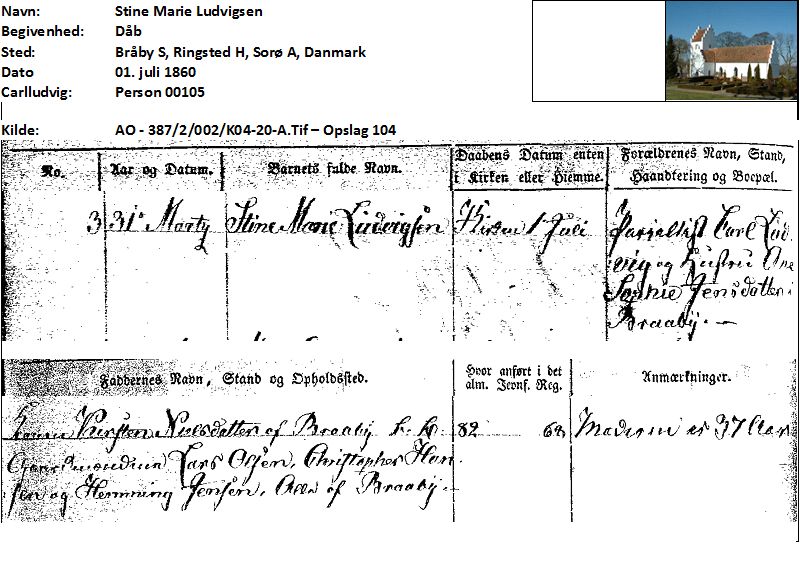 Navn: Stine Marie Ludvigsen
Begivenhed: Dåb
Sted: Bråby S, Ringsted H, Sorø A, Danmark
Dato 01. juli 1860
Carlludvig: Person 00105
Kilde: AO - 387/2/002/K04-20-A.Tif – Opslag 104
No. Aar og Datum. Barnets fulde Navn. Daabens Datum enten i Kirken eller Hjemme. Forældrenes Navn, Stand, Haandtering og Boepæl.
3 31te Marty Stine Marie Ludvigsen Kirken 1 Juli Parcellist Carl Lud
vig og Hustru Ane
Sophie Jensdatter i
Braaby. —
Faddernes Navn, Stand og Opholdssted. Hvor anført i det alm. Jevnf. Reg. Anmærkninger.
Kirsten Nielsdatter af Braaby 82 68 Moderen er 37 Aar
Gaardmændene Lars Olsen, Christopher Han
sen og Hemming Jensen, Alle af Braaby.